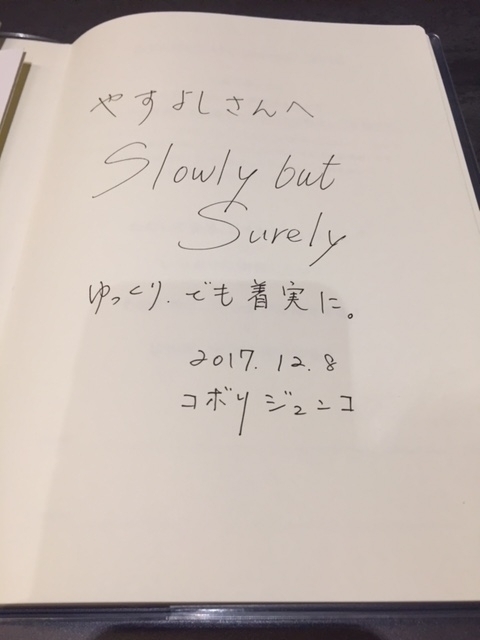 やすよしさんへ
Slowly but
Surely
ゆっくり、でも着実に。
2017.12.8
コボリジュンコ